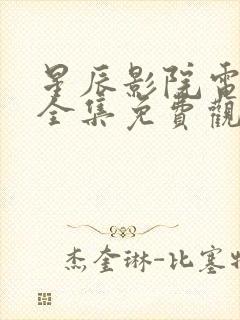 星辰影院電
全集免費觀
杰奎琳-比塞特